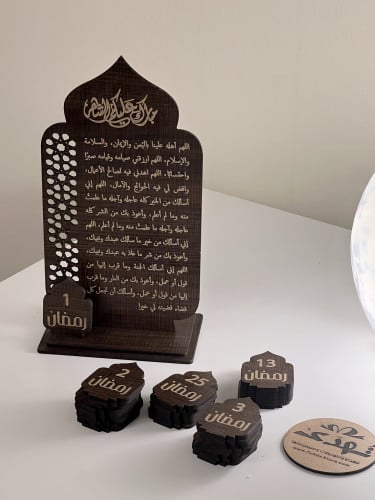 مبارك عليكم الشهر
اللهم أهله علينا باليُمن والإيمان، والسلامة
والإسلام، اللهم ارزقني صيامه وقيامه صبرًا
واحتسابًا، اللهم اهدني فيه لصالح الأعمال،
واقض لي فيه الحوائج والآمال، اللهم إني
أسألك من الخير كله عاجله وآجله ما علمتُ
منه وما لم أعلم، وأعوذ بك من الشر كله
عاجله وآجله ما علمتُ منه وما لم أعلم، اللهم
إني أسألك من خير ما سألك عبدك ونبيك،
وأعوذ بك من شر ما عاذ به عبدك ونبيك،
اللهم إني أسألك الجنة وما قرّب إليها من
قول أو عمل، وأعوذ بك من النار وما قرب
إليها من قول أو عمل، وأسألك أن تجعل كل
قضاء قضيته لي خيرا
1
رمضان
2
رمضان
25
رمضان
13
رمضان
3
رمضان